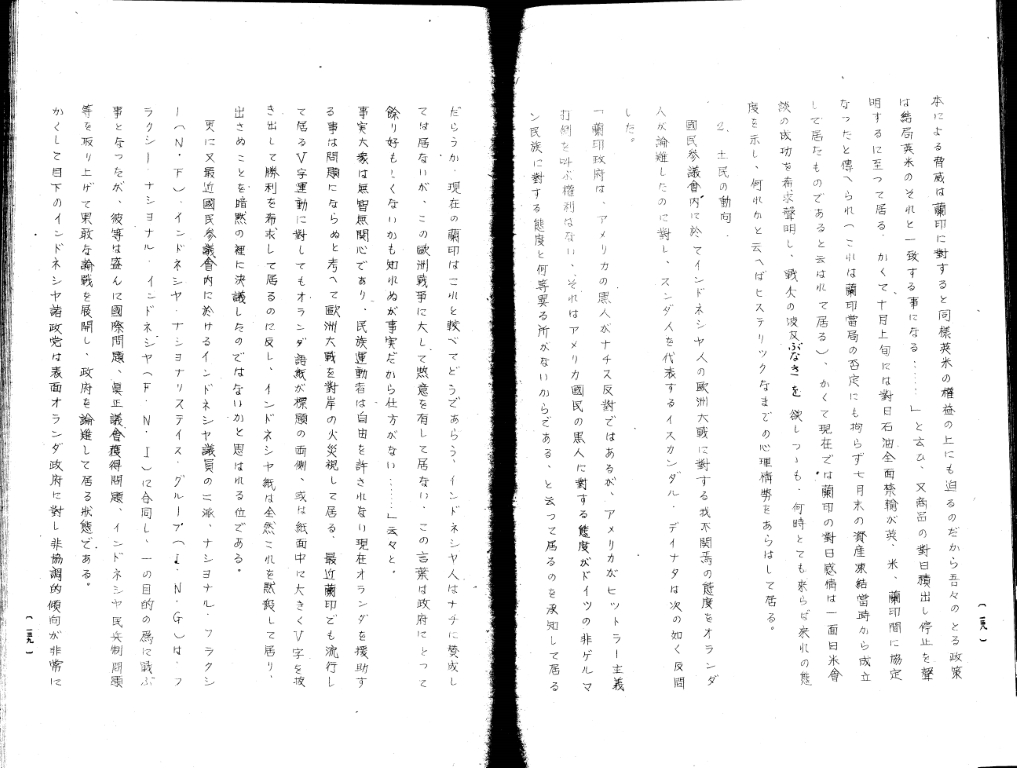 本による脅威は蘭印に對すると同様英米の權益の上にも迫るのだから吾々のとる政策
は結局英米のそれと一致する事になる……」と云ひ、又商品の對日積出し停止を聲
明するに至つて居る。かくて十月上旬には對日石油全面禁輸が英、米、蘭印間に協定
なつたと傳へられ(これは蘭印當局の否定にも拘らず七月末の資產凍結當時から成立
して居たものであると云はれて居る)、かくて現在では蘭印の對日感情は一面日米會
談の成功を希求聲明し、戰火の波及ぶなきを欲しつゝも、何時とても来らば来れの態
度を示し、何れかと云へばヒステリツクなまでの心理情勢をあらはして居る。
2、土民の動向
國民參議會内に於てインドネシヤ人の歐洲大戰に對する我不關焉の態度をオランダ
人が論難したのに對し、スンダ人を代表するイスカンダル・デイナタは次の如く反問
した。
「蘭印政府は、アメリカの黒人がナチス反對ではあるが、アメリカがヒツトラー主義
打倒を叫ぶ權利はない、それはアメリカ國民の黒人に對する態度がドイツの非ゲルマ
ン民族に對する態度と何等異る所がないからである、と云つて居るのを承知して居る
(一二九)
だらうか、現在の蘭印はこれと較べてどうであらう、インドネシヤ人はナチに賛成し
ては居ないが、この歐洲戰爭に大して熱意を有して居ない、この言葉は政府にとつて
餘り好もしくないかも知れぬが事実だから仕方がない……」云々と。
事実大衆は無智無關心であり、民族運動者は自由を許されなり現在オランダを援助す
る事は問題にならぬと考へて歐洲大戰を對岸の火災視して居る、最近蘭印でも流行し
て居るV字運動に對してもオランダ語紙が標題の両側、或は紙面中に大きくV字を
き出して勝利を希求して居るのに反し、インドネシヤ紙は全然これを默殺して居り、
出さぬことを暗默の裡に決議したのではないかと思はれる位である。
更に又最近國民參議會内に於けるインドネシヤ議員の二派、ナシヨナル・フラクシ
ー(N・F)、インドネシヤ・ナシヨナリステイス・グループ(I・N・G)は、フ
ラクシー・ナシヨナル・インドネシヤ(F・N・I)に合同し、一の目的の爲に戰ふ
事となつたが、彼等は盛んに國際問題、眞正議會獲得問題、インドネシヤ民兵制問題
等を取り上げて果敢な論戰を展開し、政府を論難して居る狀態である。
かくして目下のインドネシヤ諸政党は表面オランダ政府に對し非協調的傾向が非常に